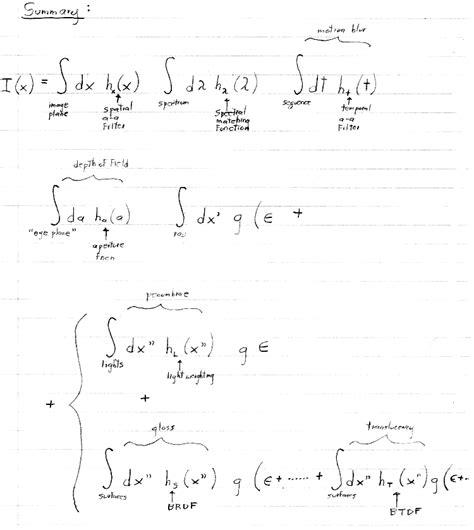 Summary:
motion blur
I(x) = ∫ dx hₓ(x) ∫ dλ h_λ(λ) ∫ dt h_t(t)
image plane spatial a-a Filter spectrum Spectral matching Function sequence temporal a-a Filter
depth of Field
∫ da hₐ(a) ∫ dx' g (ε +
"eye plane" aperture
penumbrae
∫ dx" h_L(x") g ε
lights light weighting
+ +
gloss translucency
∫ dx" h_S(x") g (ε+ ...... + ∫ dx" h_T(x") g(ε+..
surfaces BRDF surfaces BTDF